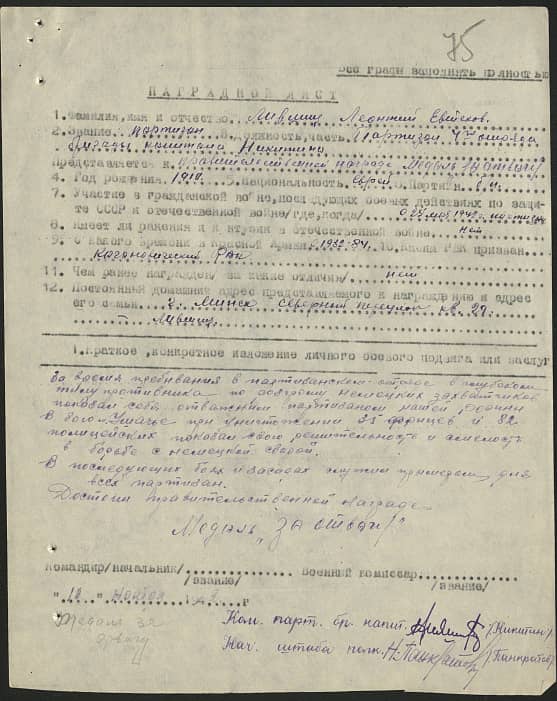 75
Все графы заполнять полностью
НАГРАДНОЙ ЛИСТ
1. Фамилия, имя и отчество Лившиц Леонтий Евсеев.
2. Звание партизан 3. Должность, часть Партизан 4го отряда
бригады капитана Никитина
Представляется к правительственной награде Медаль "За отвагу"
4. Год рождения 1910 5. Национальность еврей 6. Партийн
7. Участие в гражданской войне, последующих боевых действиях по защи-
те СССР и отечественной войне/где, когда/ с 25 мая 1942г партизан
8. Имеет ли ранения и контузии в отечественной войне. нет
9. С какого времени в Красной Армии с 1932-34 10. Каким РВК призван
Кагановичский РВК
11. Чем ранее награжден/за какие отличия/ нет
12. Постоянный домашний адрес представляемого к награждению и адрес
его семьи г. Минск Северный переулок 29.
Лившиц.
1. Краткое, конкретное изложение личного боевого подвига или заслуг
За время пребывания в партизанском отряде в глубоком
тылу противника по разгрому немецких захватчиков
показал себя отважным партизаном нашей родины
В бою Ушачье при уничтожении 25 фрицев и 82
полицейских показал свою решительность и смелость
в борьбе с немецкой сворой.
В последующих боях и засадах служил примером для
всех партизан.
Достоин Правительственной награде
Медаль "За отвагу"
Командир/начальник/ Военный комиссар
/звание/ /звание/
"12" ноября 1942 г
Медаль за
отвагу
Ком. парт. бр. капит. (Никитин)
Нач. штаба полк. Н. Панкратов (Панкратов)